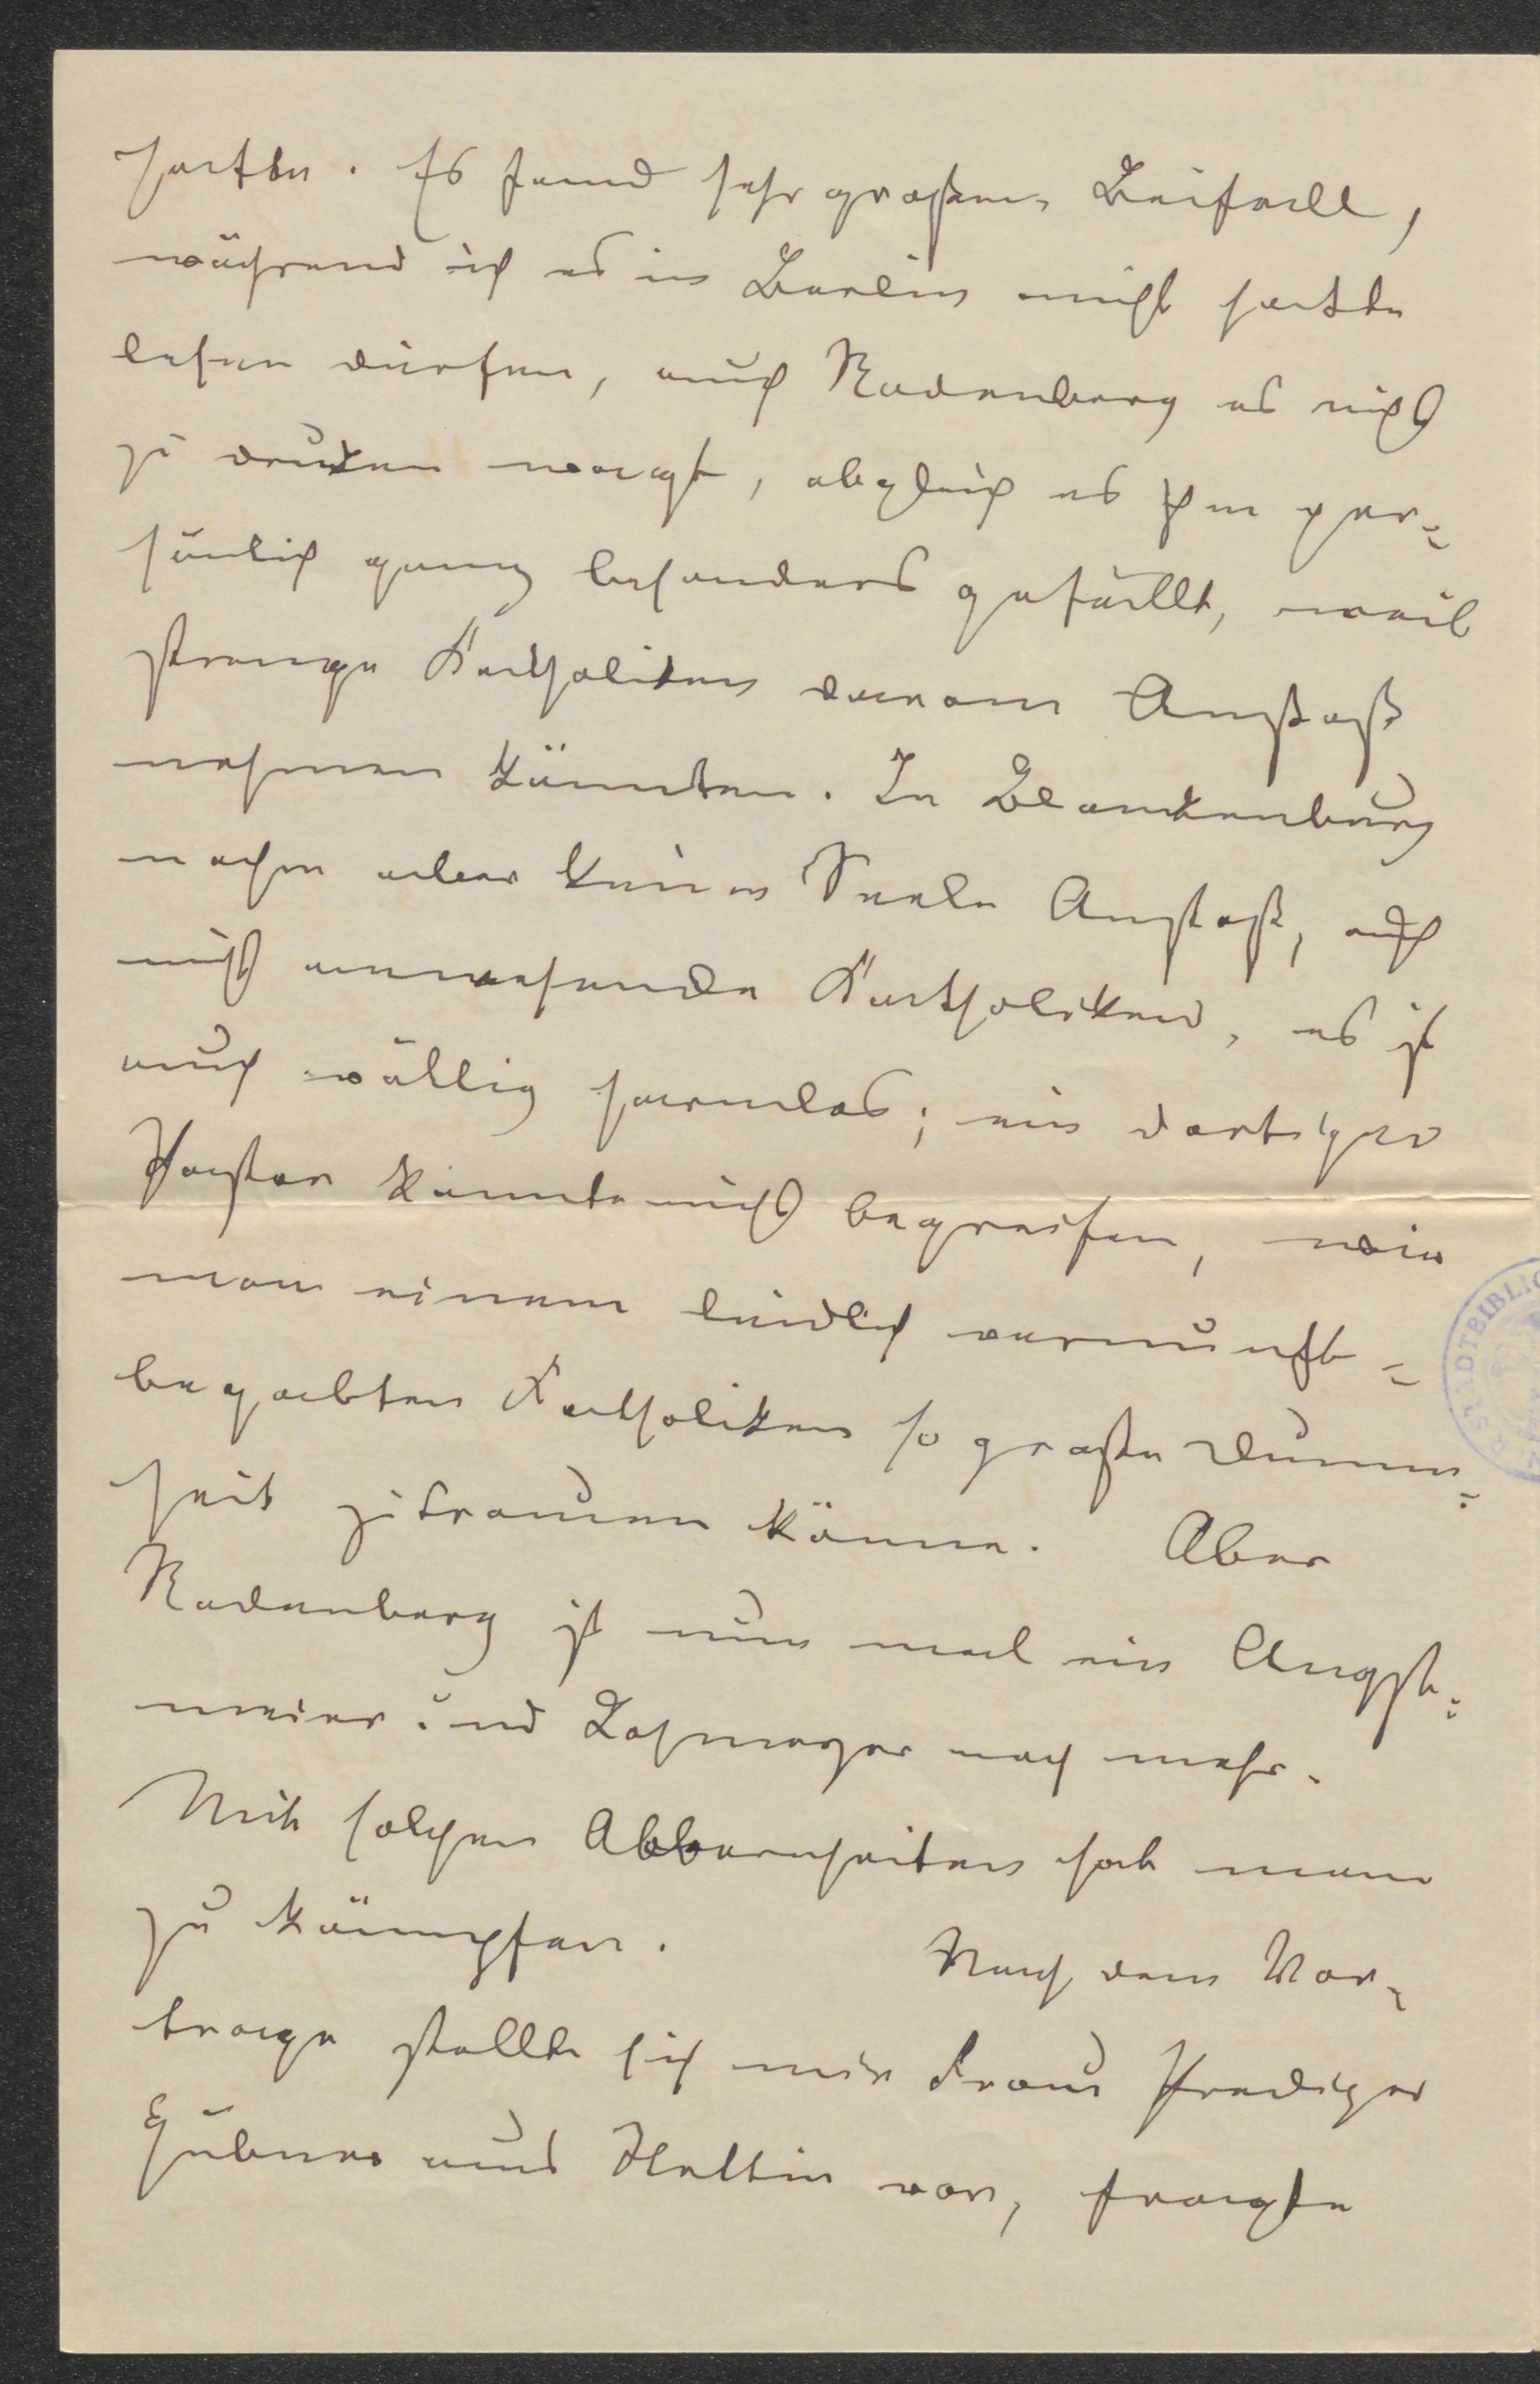 hatte. Es fand sehr großen Beifall,
während ich es in Berlin nicht hatte
lesen dürfen, auch Rodenberg es nicht
zu drucken wagt, obgleich es ihm per-
sönlich ganz besonders gefällt, weil
strenge Katholiken daran Anstoß
nehmen könnten. In Blankenburg
nahm aber keine Seele Anstoß, auch
nicht anwesende Katholiken, es ist
auch völlig harmlos; ein dortiger
Pastor konnte nicht begreifen, wie
man einem leidlich vernunft-
begabten Katholiken so große Dumm-
heit zutrauen könne. Aber
Rodenberg ist nun mal ein Angst-
meier und Lohmeyer noch mehr.
Mit solchen Albernheiten hat man
zu kämpfen. Nach dem Vor-
trage stellte sich mir Frau Prediger
aus Stettin vor, fragte
STADTBIBLIO